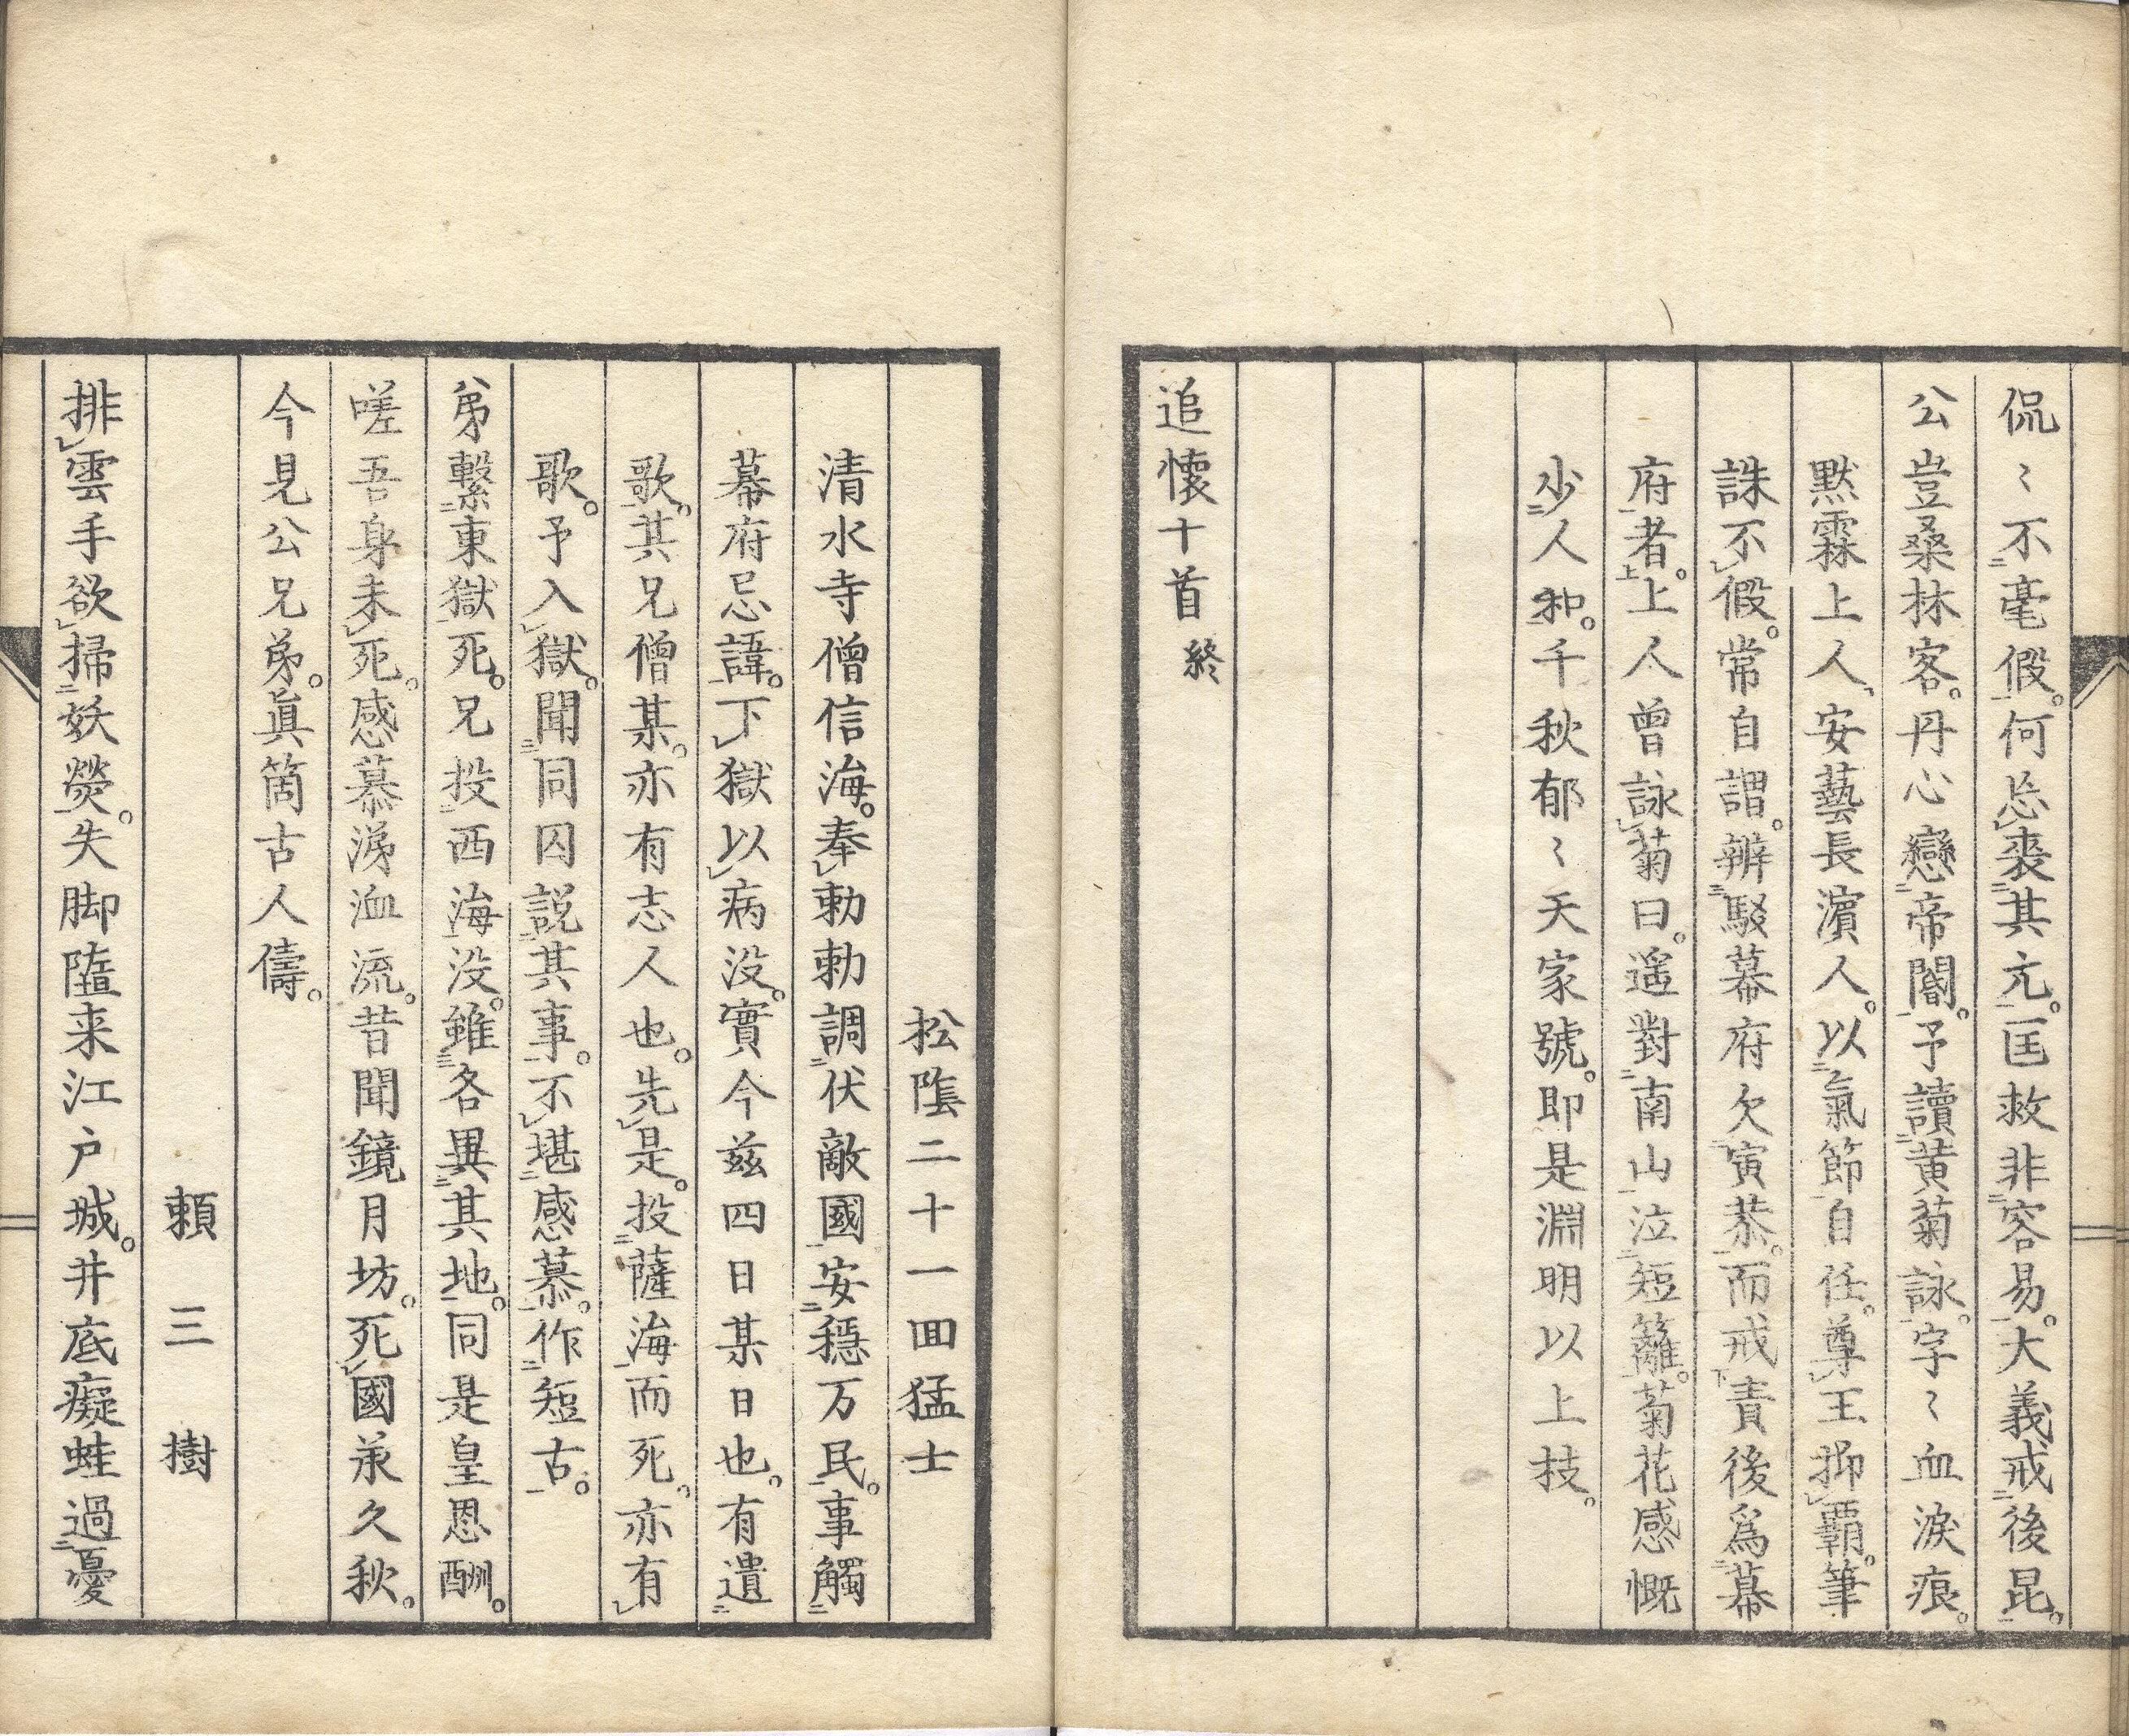 侃〻不毫假。何忘喪其元。匡救非容易。大義戒後昆。
公豈桑林客。丹心戀帝閽。予讀黄菊詠。字〻血淚痕。
黙霖上人、安藝長濵人。以氣節自任。尊王抑覇。筆
誅不假。常自謂。辨駁幕府欠寅恭。而戒責後爲幕
府者。上人曾詠菊曰。遥對南山泣短籬。菊花感慨
少人和。千秋郁〻天家號。即是淵明以上技。
追懷十首終
松陰二十一回猛士
清水寺僧信海。奉勅勅調伏敵國安穏万民。事觸
幕府忌諱。下獄以病没。實今兹四日某日也。有遺
歌。其兄僧某。亦有志人也。先是。投薩海而死。亦有
歌。予入獄。聞同囚説其事。不堪感慕。作短古。
弟繫東獄死。兄投西海没。雖各異其地。同是皇恩酬。
嗟吾身未死。感慕涕血流。昔聞鏡月坊。死國承久秋。
今見公兄弟。眞箇古人儔。
頼三樹
排雲手欲掃妖熒。失脚墮来江戸城。井底癡蛙過憂